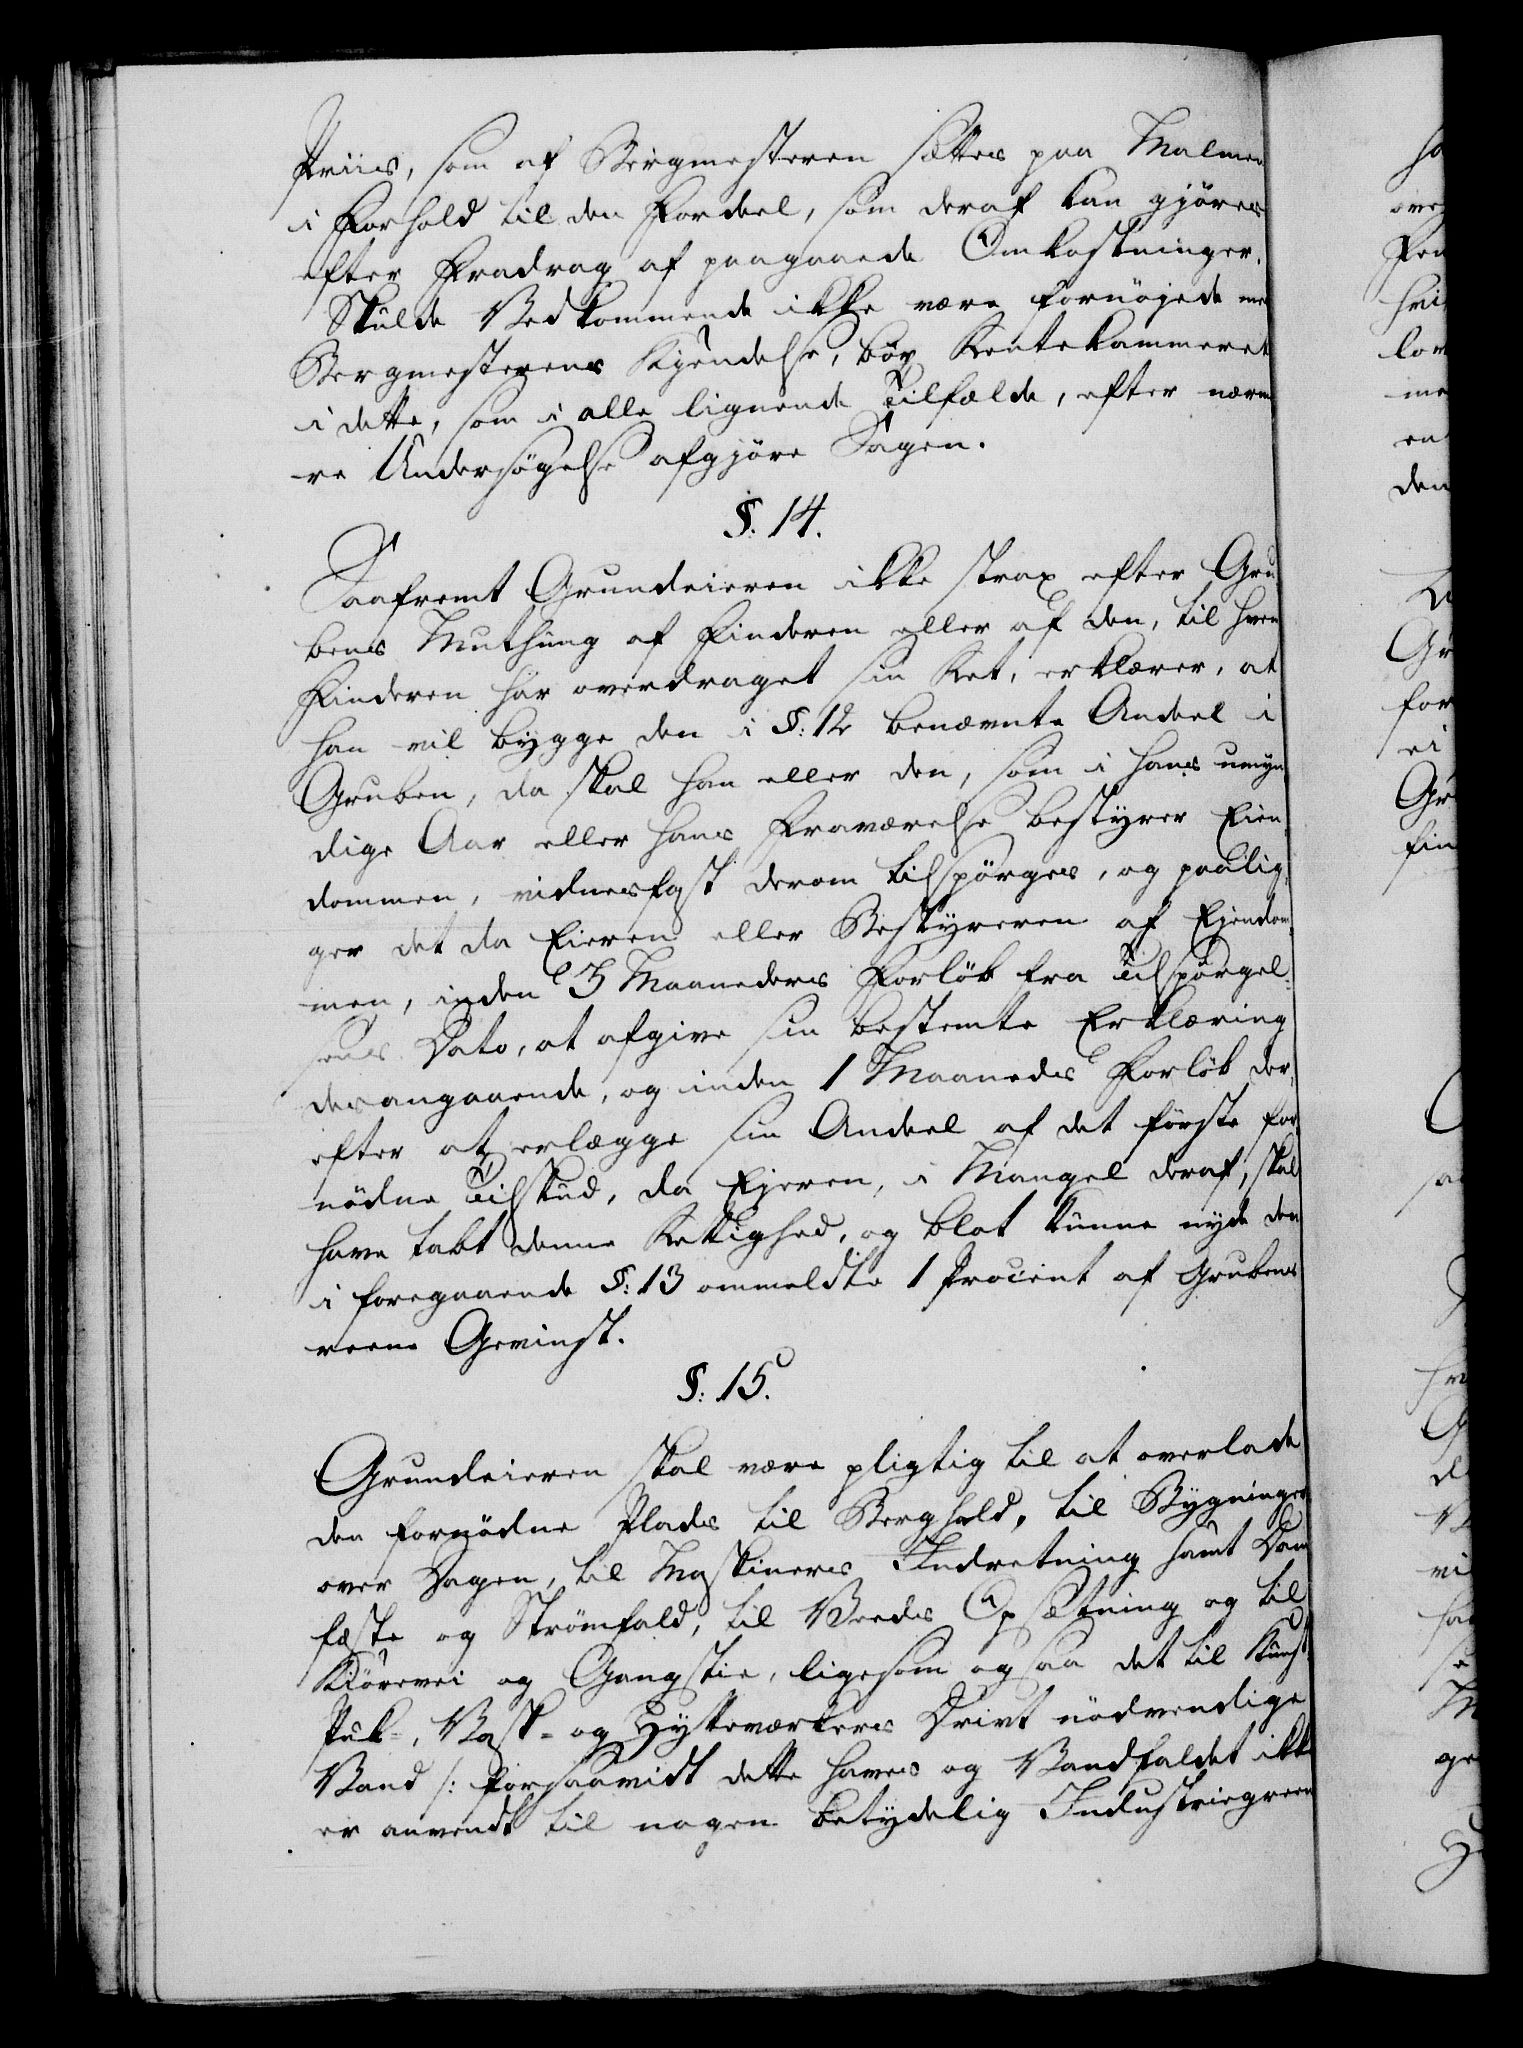 Priis, som af Bergmesteren sættes paa Malmen
i Forhold til den Fordeel, som deraf kan gjöres
efter Fradrag af paagaaende Omkostninger.
Skulde Vedkommende ikke være fornöjede med
Bergmesterens Kjendelse, bör Rentekammeret
i dette, som i alle lignende Tilfælde, efter nærme
re Undersögelse afgjöre Sagen.
§. 14.
Saafremt Grundeieren ikke strax efter Gru
bens Muthung af Finderen eller af den, til hvem
Finderen har overdraget sin Ret, erklærer, at
han vil bygge den i §: 12 benævnte Andeel i
Gruben, da skal han eller den, som i hans umyn
dige Aar eller hans Fraværelse bestyrer Eien,
dommen, vidnesfast derom tilspörges, og paalig,
ger det da Eieren eller Bestyreren af Ejendom,
men, inden 3 Maaneders Forlöb fra Tilspörgel-
sens Dato, at afgive sin bestemte Erklæring
desangaaende, og inden 1 Maaneds Forlöb der,
efter at erlægge sin Andeel af det förste for,
nödne Tilskud, da Ejeren, i Mangel deraf, skal
have tabt denne Rettighed, og blot kunne nyde den
i foregaaende §: 13 ommeldte 1 Procent af Grubens
reene Gevinst.
§: 15.
Grundeieren skal være pligtig til at overlade
den fornödne Plads til Berghald, til Bygninger
over Dagen, til Maskiners Indretning samt Dam
fæste og Strömfald, til Veeds Opsætning og til
Kiörevei og Gangstie, ligesom ogsaa det til Kunst,
Puk-, Vask- og Hytteværkers Drivt nödvendige
Vand /: forsaavidt dette haves og Vandfaldet ikke
er anvendt til nogen betydelig Industriegreen